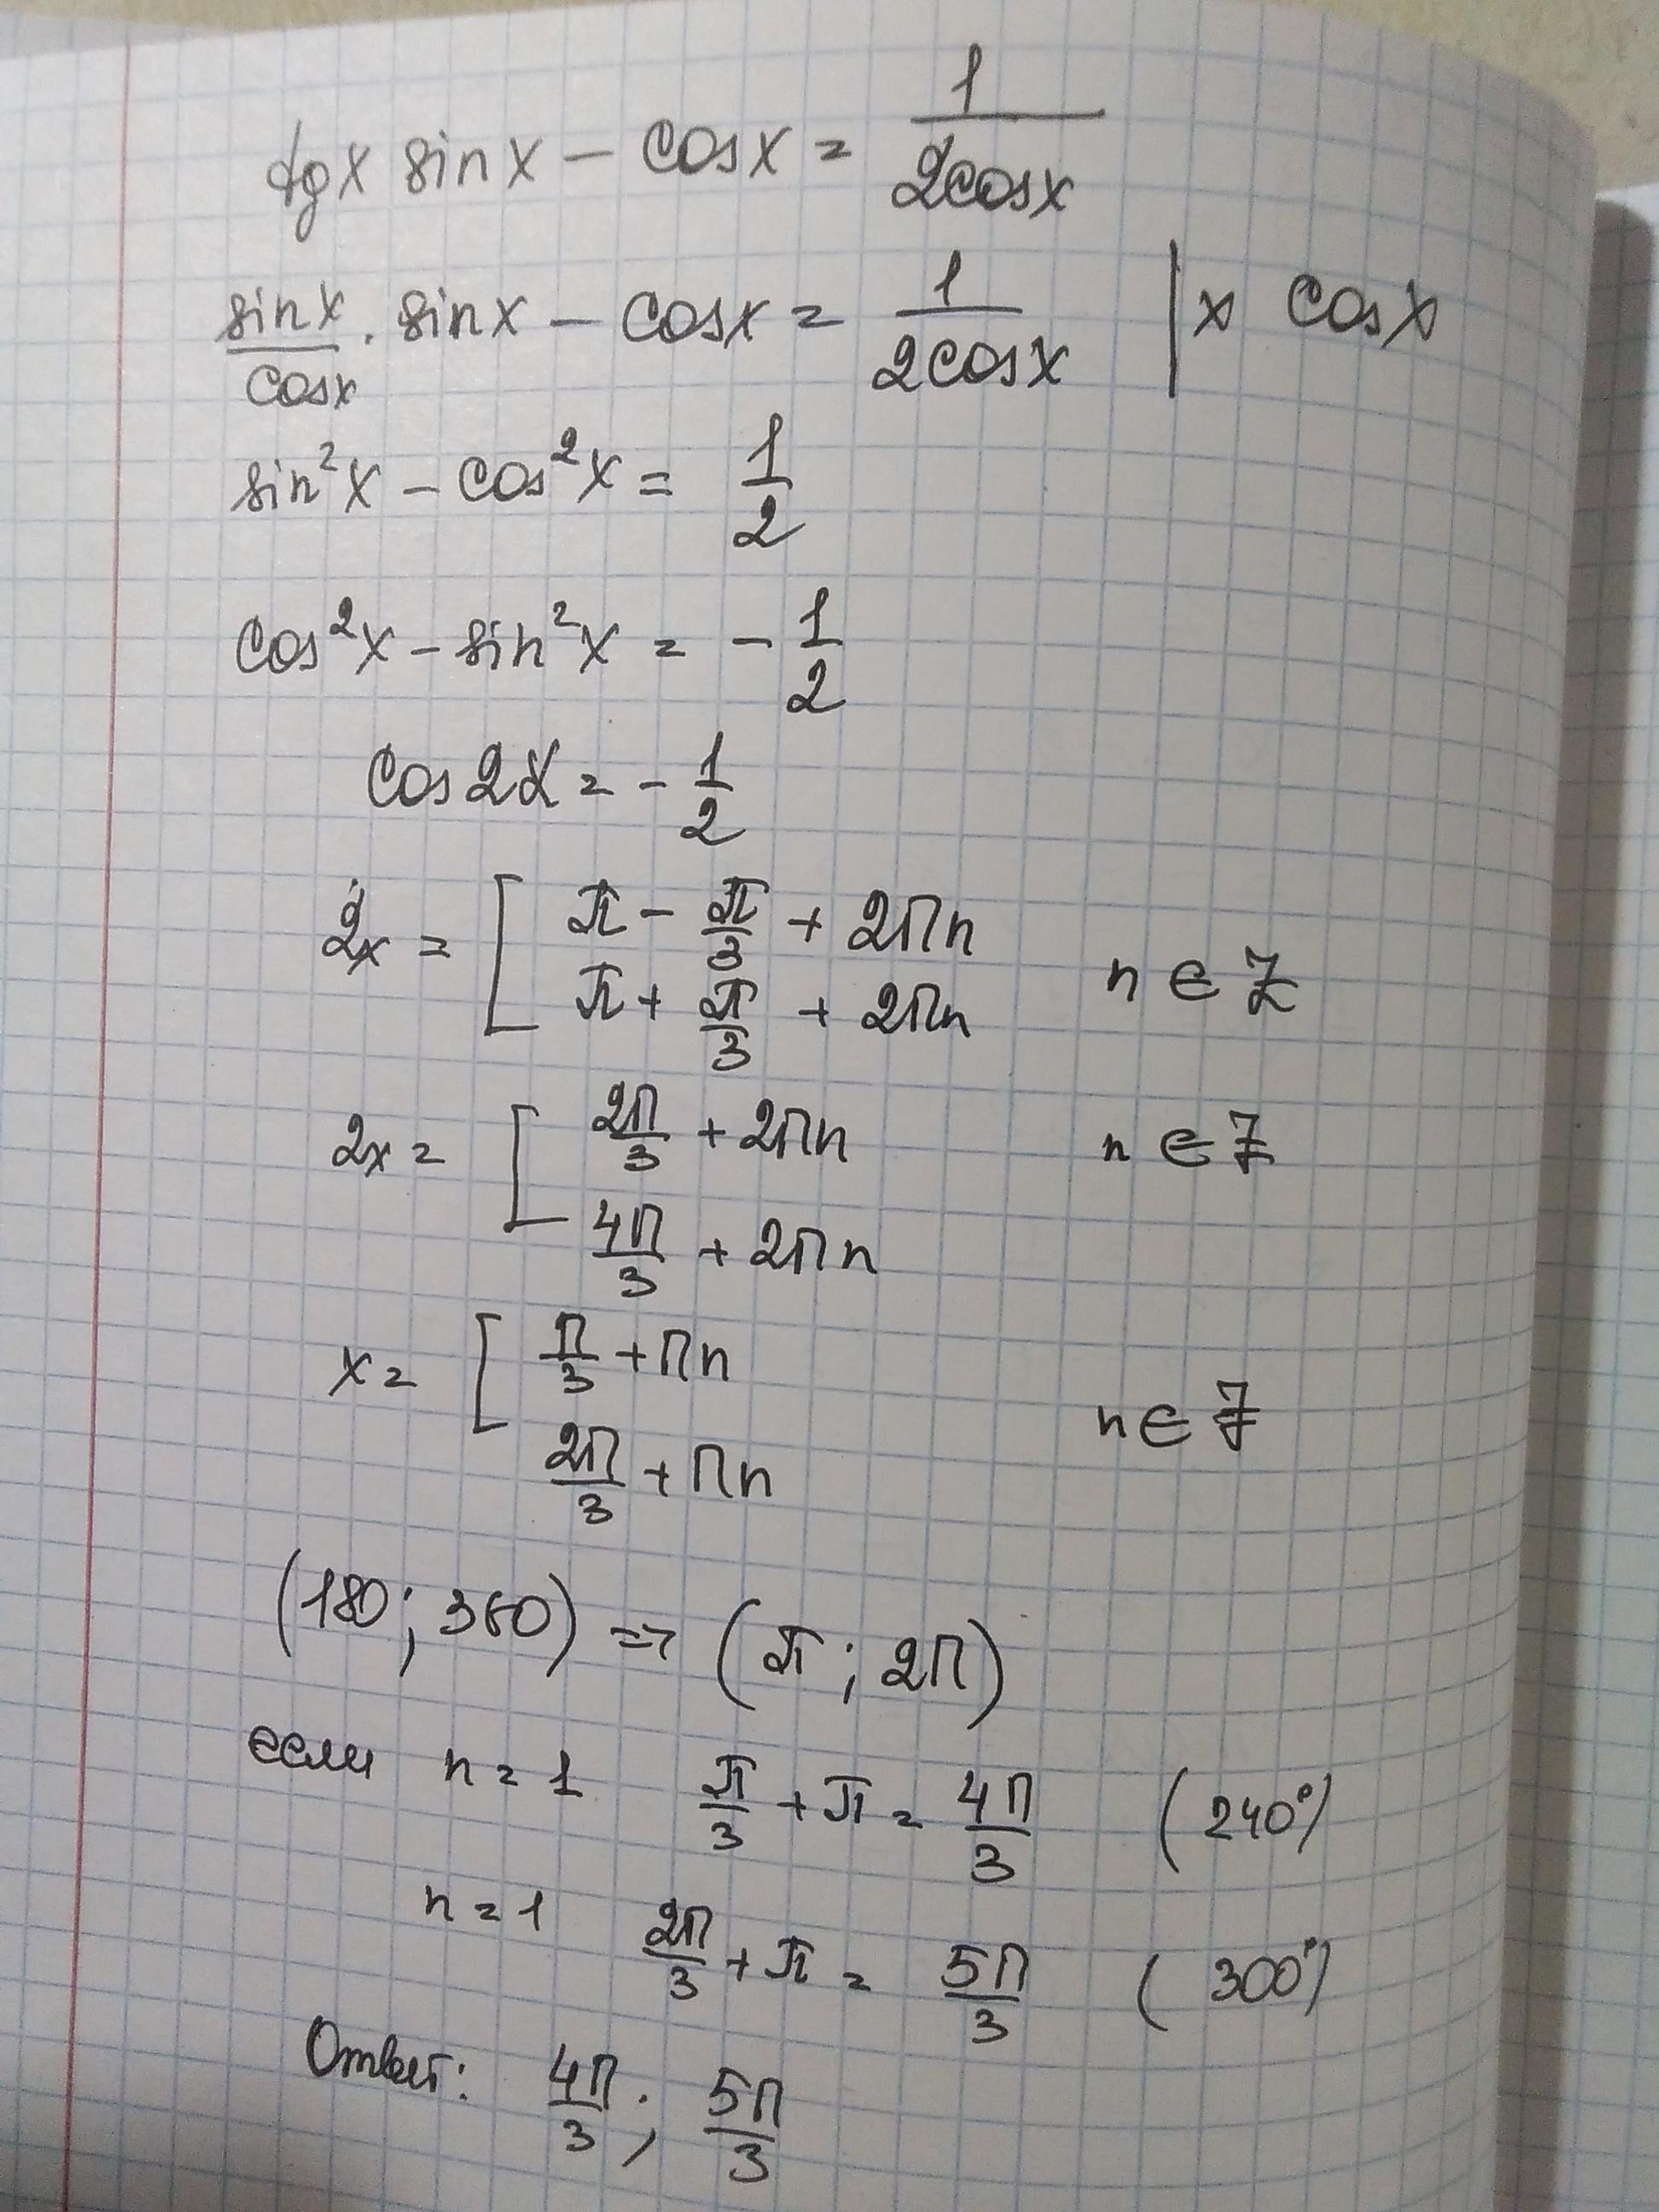 tgx sinx - cosx = 1/2cosx
sinx/cosx · sinx - cosx = 1/2cosx | x cosx
sin²x - cos²x = 1/2
cos²x - sin²x = - 1/2
cos2x = - 1/2
2x = [ π - π/3 + 2πn
π + π/3 + 2πn n ∈ Z
2x = [ 2π/3 + 2πn n ∈ Z
4π/3 + 2πn
x = [ π/3 + πn
2π/3 + πn n ∈ Z
(180; 360) => (π; 2π)
если n = 1 π/3 + π = 4π/3 (240°)
n = 1 2π/3 + π = 5π/3 (300°)
Ответ: 4π/3; 5π/3